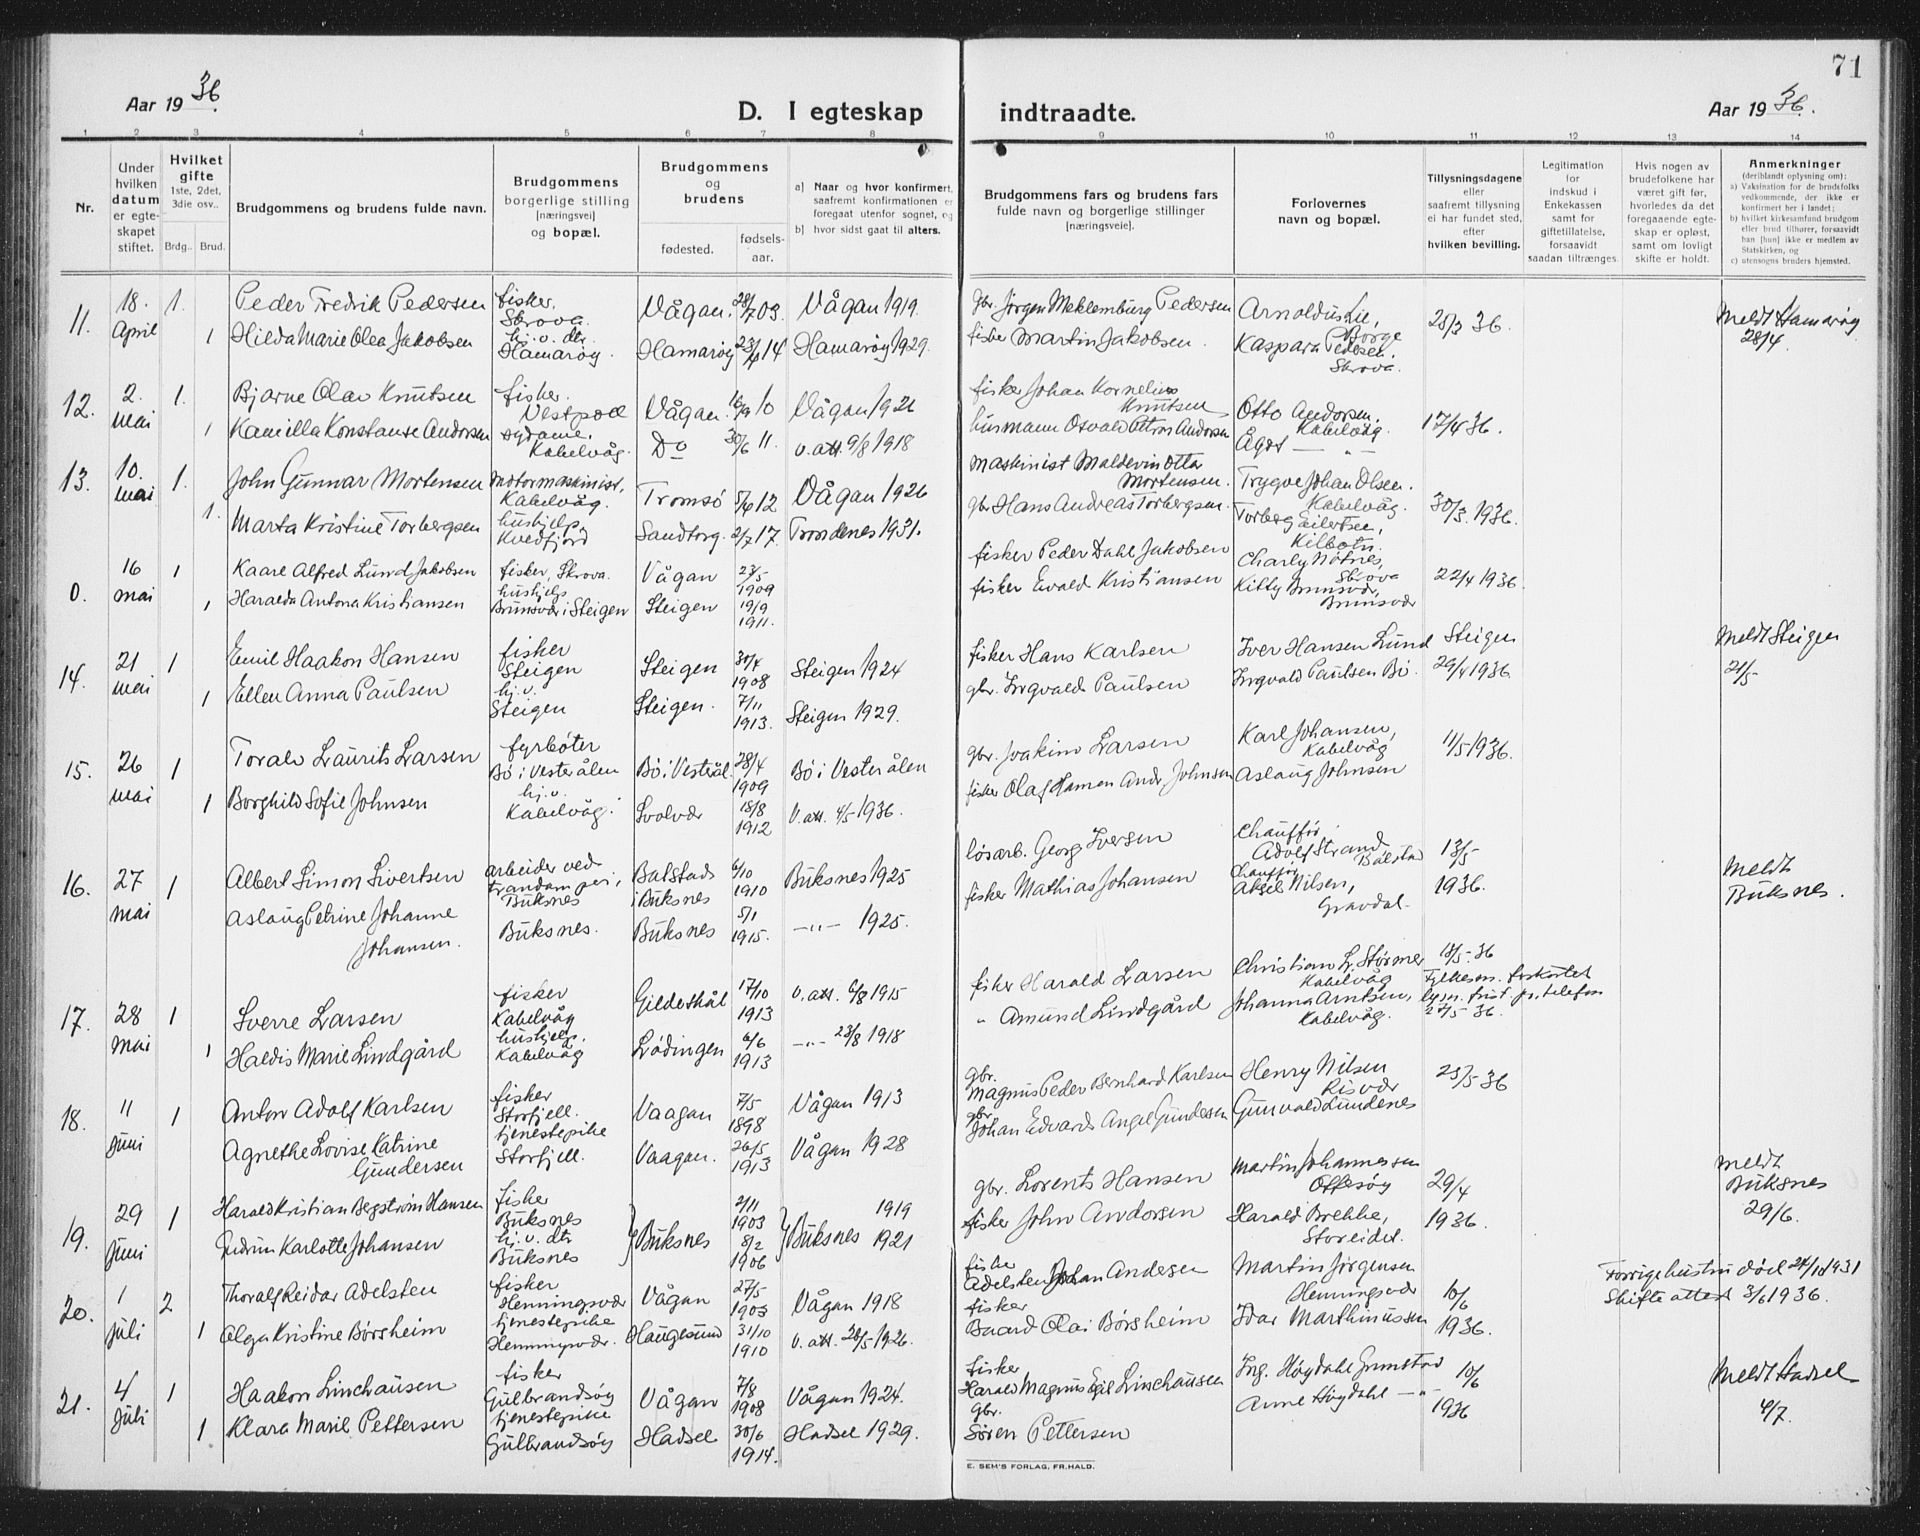 71
Aar 1936.
D. I egteskap indtraadte.
Aar 1936.
1 2 3 4 5 6 7 8 9 10 11 12 13 14
Nr.
Under hvilken datum er egteskapet stiftet.
Hvilket gifte 1ste, 2det, 3die osv..
Brdg.. Brud.
Brudgommens og brudens fulde navn.
Brudgommens borgerlige stilling [næringsvei] og bopæl.
Brudgommens og brudens
fødested. fødselsaar.
a) Naar og hvor konfirmert, saafremt konfirmationen er foregaat utenfor sognet, og
b) hvor sidst gaat til alters.
Brudgommens fars og brudens fars fulde navn og borgerlige stillinger [næringsveie].
Forlovernes navn og bopæl.
Tillysningsdagene eller saafremt tillysning ei har fundet sted, efter hvilken bevilling.
Legitimation for indskud i Enkekassen samt for giftetillatelse, forsaavidt saadan tiltrænges.
Hvis nogen av brudefolkene har været gift før, hvorledes da det foregaaende egteskap er opløst, samt om lovligt skifte er holdt.
Anmerkninger (deriblandt oplysning om):
a) Vaksination for de brudsfolks vedkommende, der ikke er konfirmert her i landet;
b) hvilket kirkesamfund brudgom eller brud tilhører, forsaavidt han [hun] ikke er medlem av Statskirken, og
c) utensogns bruders hjemsted.
11. 18. April 1. Peder Fredrik Pedersen fisker. Skrova. Vågan. 28/7 03. Vågan 1919. gbr. Jørgen Meklemburg Pedersen Arnoldus Lie, Borge 25/3 36. Meldt Hamarøy 28/4.
1 Hilda Marie Olea Jakobsen hj. v. dtr. Hamarøy. Hamarøy 23/4 14 Hamarøy 1929. fisker Martin Jakobsen. Kaspara Pedersen. Skrova.
12. 2. mai 1. Bjarne Olav Knutsen fisker. Vestpoll Vågan. 16/9 10 Vågan 1926 fisker Johan Kornelius Knutsen Otto Andorsen. Kabelvåg. 17/4 36.
1 Kamilla Konstanse Andorsen sydame. Kabelvåg. Do 30/6 11. v. att. 9/8 1918 husmann Osvald Petrus Andorsen Ågot — „ —
13. 10. mai 1. John Gunnar Mortensen motormaskinist, Kabelvåg. Tromsø 5/6 12 Vågan 1926 maskinist Maldevin Otta Mortensen. Trygve Johan Olsen. Kabelvåg. 30/3. 1936.
1. Marta Kristine Torbergsen hushjelp, Kvedfjord Sandtorg. 2/7 17. Trondenes 1931. gbr Hans Andreas Torbergsen. Torberg Eilertsen, Kilbotn.
0. 16 mai 1 Kaare Alfred Lund Jakobsen fisker, Skrova. Vågan 23/5 1909 fisker Peder Dahl Jakobsen Charly Nøtnes, Skrova 22/4 1936.
1 Haralda Antona Kristiansen hushjelp Brunsvær i Steigen Steigen 19/9 1911. fisker Evald Kristiansen Kitty Brunsvær, Brunsvær
14. 21 mai 1 Emil Haakon Hansen fisker Steigen Steigen 30/4 1908 Steigen 1924 fisker Hans Karlsen Iver Hansen Lund Steigen 29/4 1936 Meldt Steigen 21/5
1 Ellen Anna Paulsen hj. v. Steigen Steigen. 7/11 1913. Steigen 1929. gbr. Ingvald Paulsen Ingvald Paulsen Bø.
15. 26 mai 1 Toralv Laurits Larsen fyrbøter Bø i Vesterålen Bø i Vesterål. 28/4 1909 Bø i Vesterålen gbr. Joakim Larsen Karl Johansen, Kabelvåg 11/5 1936.
1 Borghild Sofie Johnsen hj. v. Kabelvåg. Svolvær 18/8 1912 v. att. 4/5 1936. fisker Olaf Hamon Andr. Johnsen Aslaug Johnsen
16. 27 mai 1 Albert Simon Sivertsen arbeider ved trandamperi, Buksnes Balstad i Buksnes 6/10 1910 Buksnes 1925 løsarb. Georg Iversen Chauffør Adolf Strand Balstad 13/5 1936. Meldt Buksnes.
Aslaug Petrine Johanne Johansen. Buksnes. Buksnes 5/1 1915. — „ — 1925. fisker Mathias Johansen Chauffør Aksel Nilsen, Gravdal.
17. 28 mai 1 Sverre Larsen fisker Kabelvåg Gildeskål 17/10 1913 v. att. 6/8 1915 fisker Harald Larsen Christian L. Størmer Kabelvåg 18/5. 36 Fylkesm. forkortet lysn. frist pr. telefon 27/5 36.
1 Haldis Marie Lindgård hushjelp. Kabelvåg Lødingen 6/6 1913 — „ — 23/8 1918 „ Amund Lindgård Johanna Arntsen, Kabelvåg.
18. 11 juni 1 Anton Adolf Karlsen fisker Storfjell. Vaagan 7/5 1898 Vågan 1913 gbr. Magnus Peder Bernhard Karlsen Henry Nilsen Risvær 25/5 36
Agnethe Lovise Katrine Gundersen tjenestepike Storfjell. Vaagan. 26/5 1913 Vågan 1928 gbr Johan Edvard Angel Gundesen Gunvald Lundenes
19. 29 juni 1 Harald Kristian Bergstrøm Hansen fisker Buksnes 2/11 1903 1919 gbr. Lorents Hansen Martin Johannessen Offesøy 29/4 1936. Meldt Buksnes 29/6.
Gudrun Karlotte Johansen hj. v. dtr Buksnes Buksnes 8/2 1906 Buksnes 1921 fisker John Andorsen Harald Brekke, Storeidet.
20. 1 juli 2 Thoralf Reidar Adelsten fisker Henningsvær Vågan 27/5 1903 Vågan 1918 fisker Adelsten Johan Andesen Martin Jørgensen Henningsvær 10/6 1936. Forrige hustru død 24/10 1931 Skifte attest 3/6 1936.
1 Olga Kristine Børsheim tjenestepike Henningsvær. Haugesund 31/10 1910 v. att. 28/5 1926. fisker Baard Olai Børsheim Idar Marthinussen
21. 4 juli 1 Haakon Linchausen fisker Gulbrandsøy Vågan 7/8 1908 Vågan 1924. fisker Harald Magnus Egil Linchausen Ing. Høgdahl Grimstad 10/6 1936 Meldt Hadsel 4/7.
1 Klara Marie Pettersen tjenestepike Gulbrandsøy Hadsel 30/6 1914. Hadsel 1929. gbr. Søren Pettersen Anne Høgdahl — „ —
E. SEM'S FORLAG, FR.HALD.